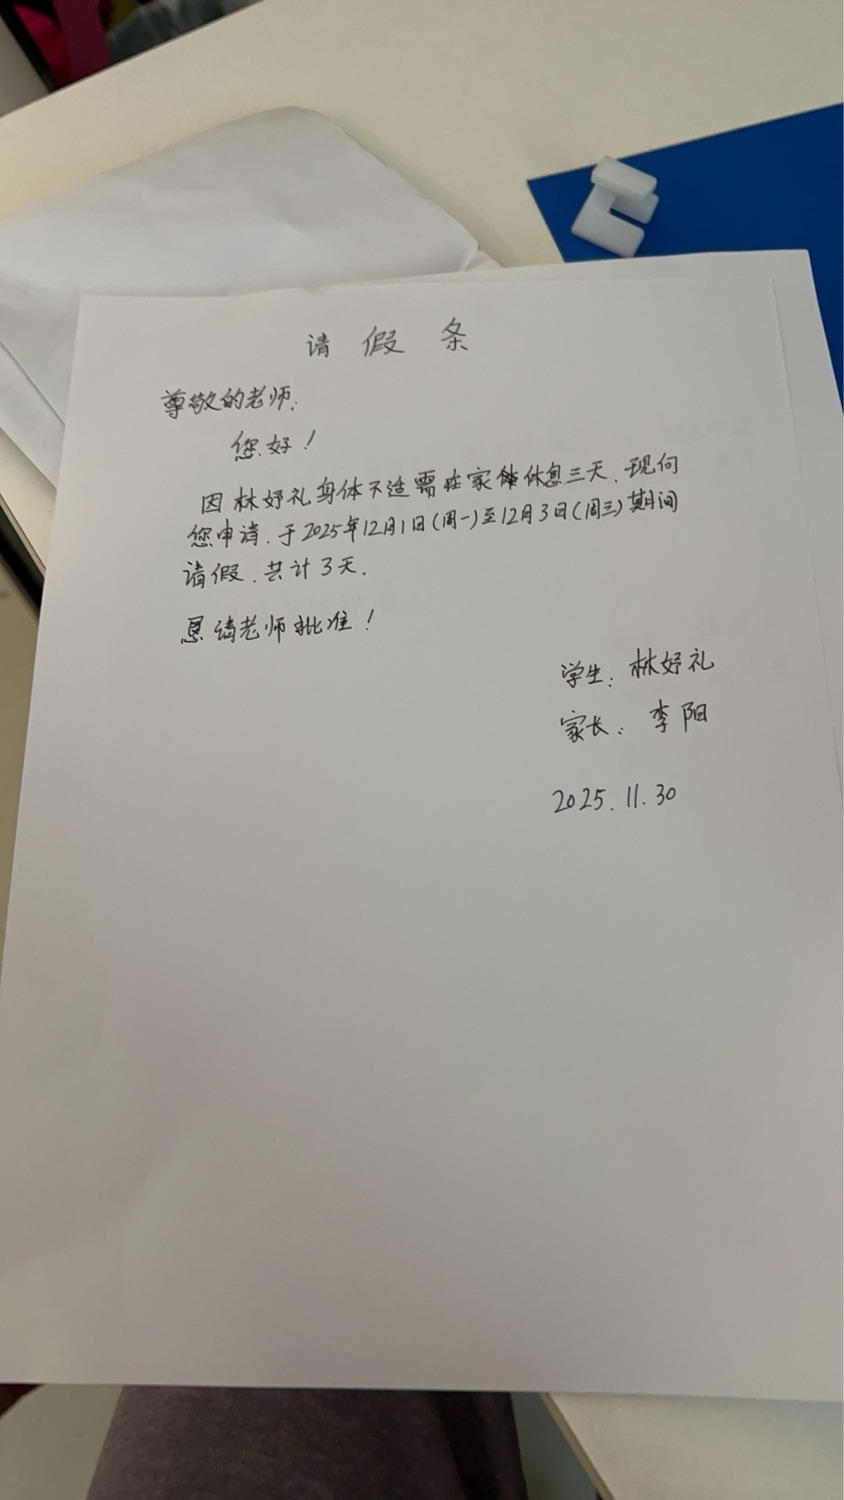 请假条
尊敬的老师:
您好！
因林妤礼身体不适需在家休息三天,现向
您申请,于2025年12月1日(周一)至12月3日(周三)期间
请假,共计3天.
恳请老师批准！
学生:林妤礼
家长:李阳
2025.11.30